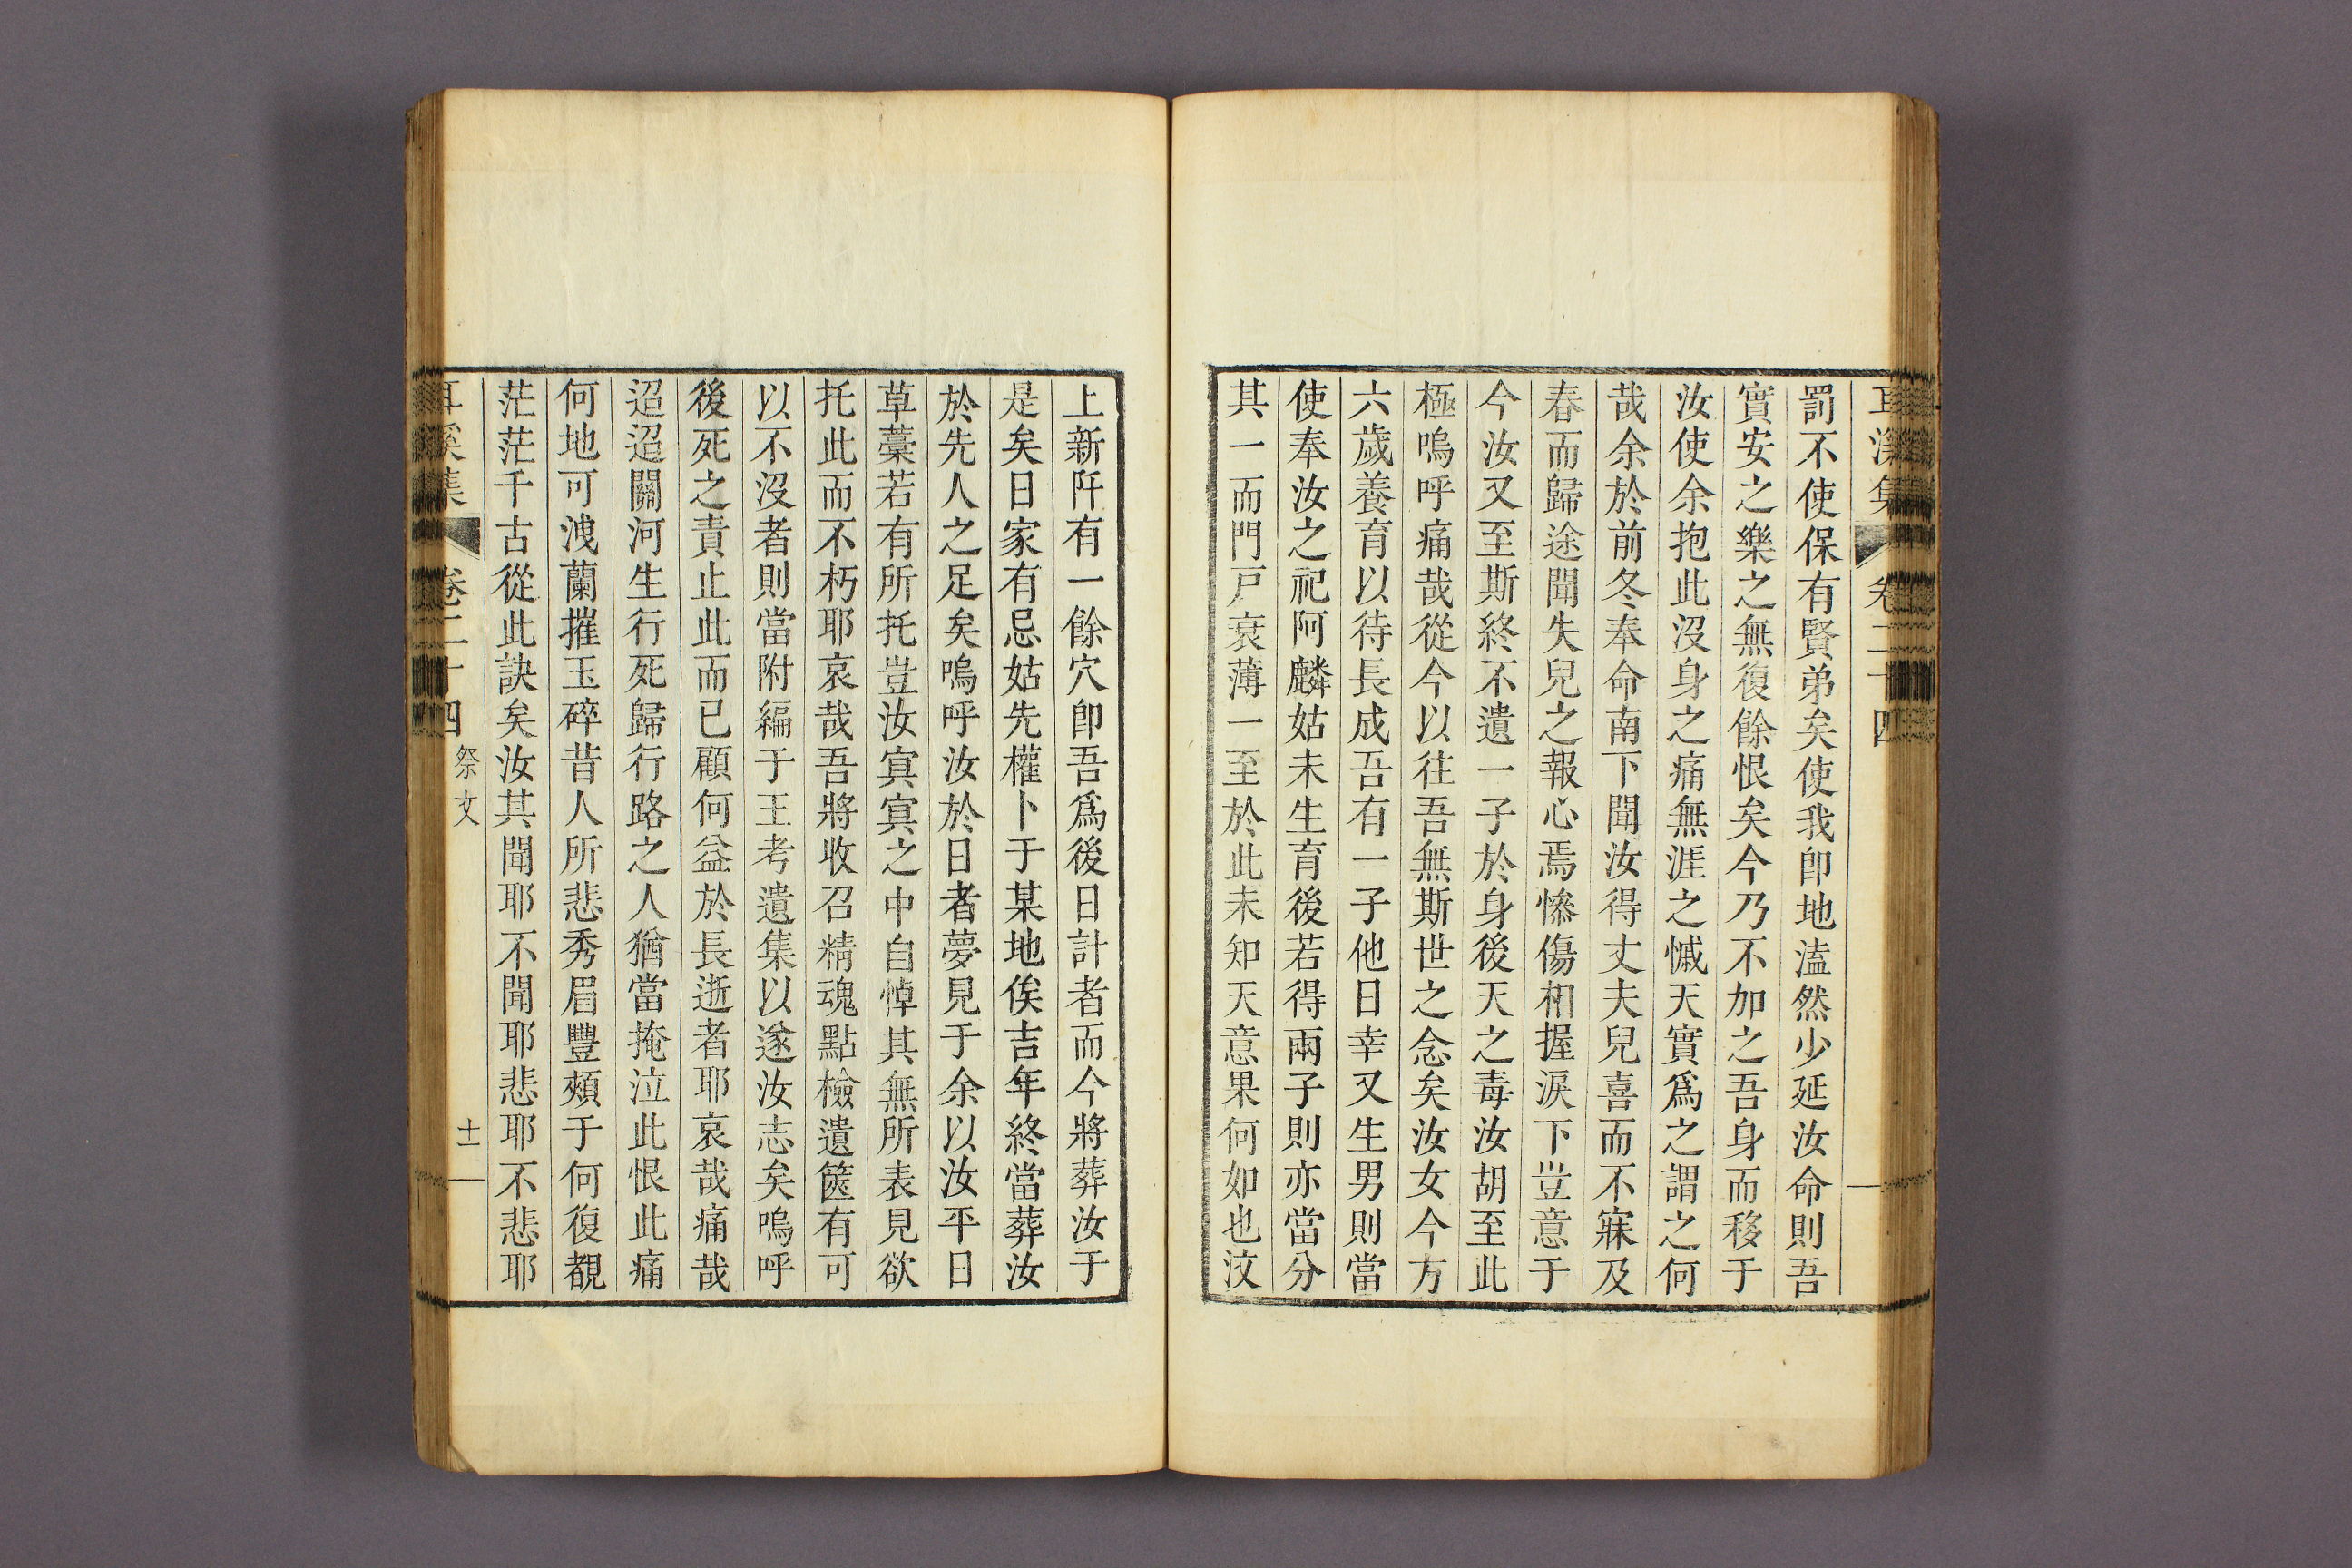 耳溪集 卷二十四
罰不使保有賢弟矣使我卽地溘然少延汝命則吾
實安之樂之無復餘恨矣今乃不加之吾身而移于
汝使余抱此沒身之痛無涯之慽天實爲之謂之何
哉余於前冬奉命南下聞汝得丈夫兒喜而不寐及
春而歸途聞失兒之報心焉慘傷相握淚下豈意于
今汝又至斯終不遺一子於身後天之毒汝胡至此
極嗚呼痛哉從今以往吾無斯世之念矣汝女今方
六歲養育以待長成吾有一子他日幸又生男則當
使奉汝之祀阿麟姑未生育後若得兩子則亦當分
其一而門戸衰薄一至於此未知天意果何如也汶
上新阡有一餘穴卽吾爲後日計者而今將葬汝于
是矣日家有忌姑先權卜于某地俟吉年終當葬汝
於先人之足矣嗚呼汝於日者夢見于余以汝平日
草藁若有所托豈汝寘寘之中自悼其無所表見欲
托此而不朽耶哀哉吾將收召精魂點檢遺篋有可
以不沒者則當附編于王考遺集以遂汝志矣嗚呼
後死之責止此而已顧何益於長逝者耶哀哉痛哉
迢迢關河生行死歸行路之人猶當掩泣此恨此痛
何地可洩蘭摧玉碎昔人所悲秀眉豐頰于何復覩
茫茫千古從此訣矣汝其聞耶不聞耶悲耶不悲耶
耳溪集 卷二十四 祭文 十一